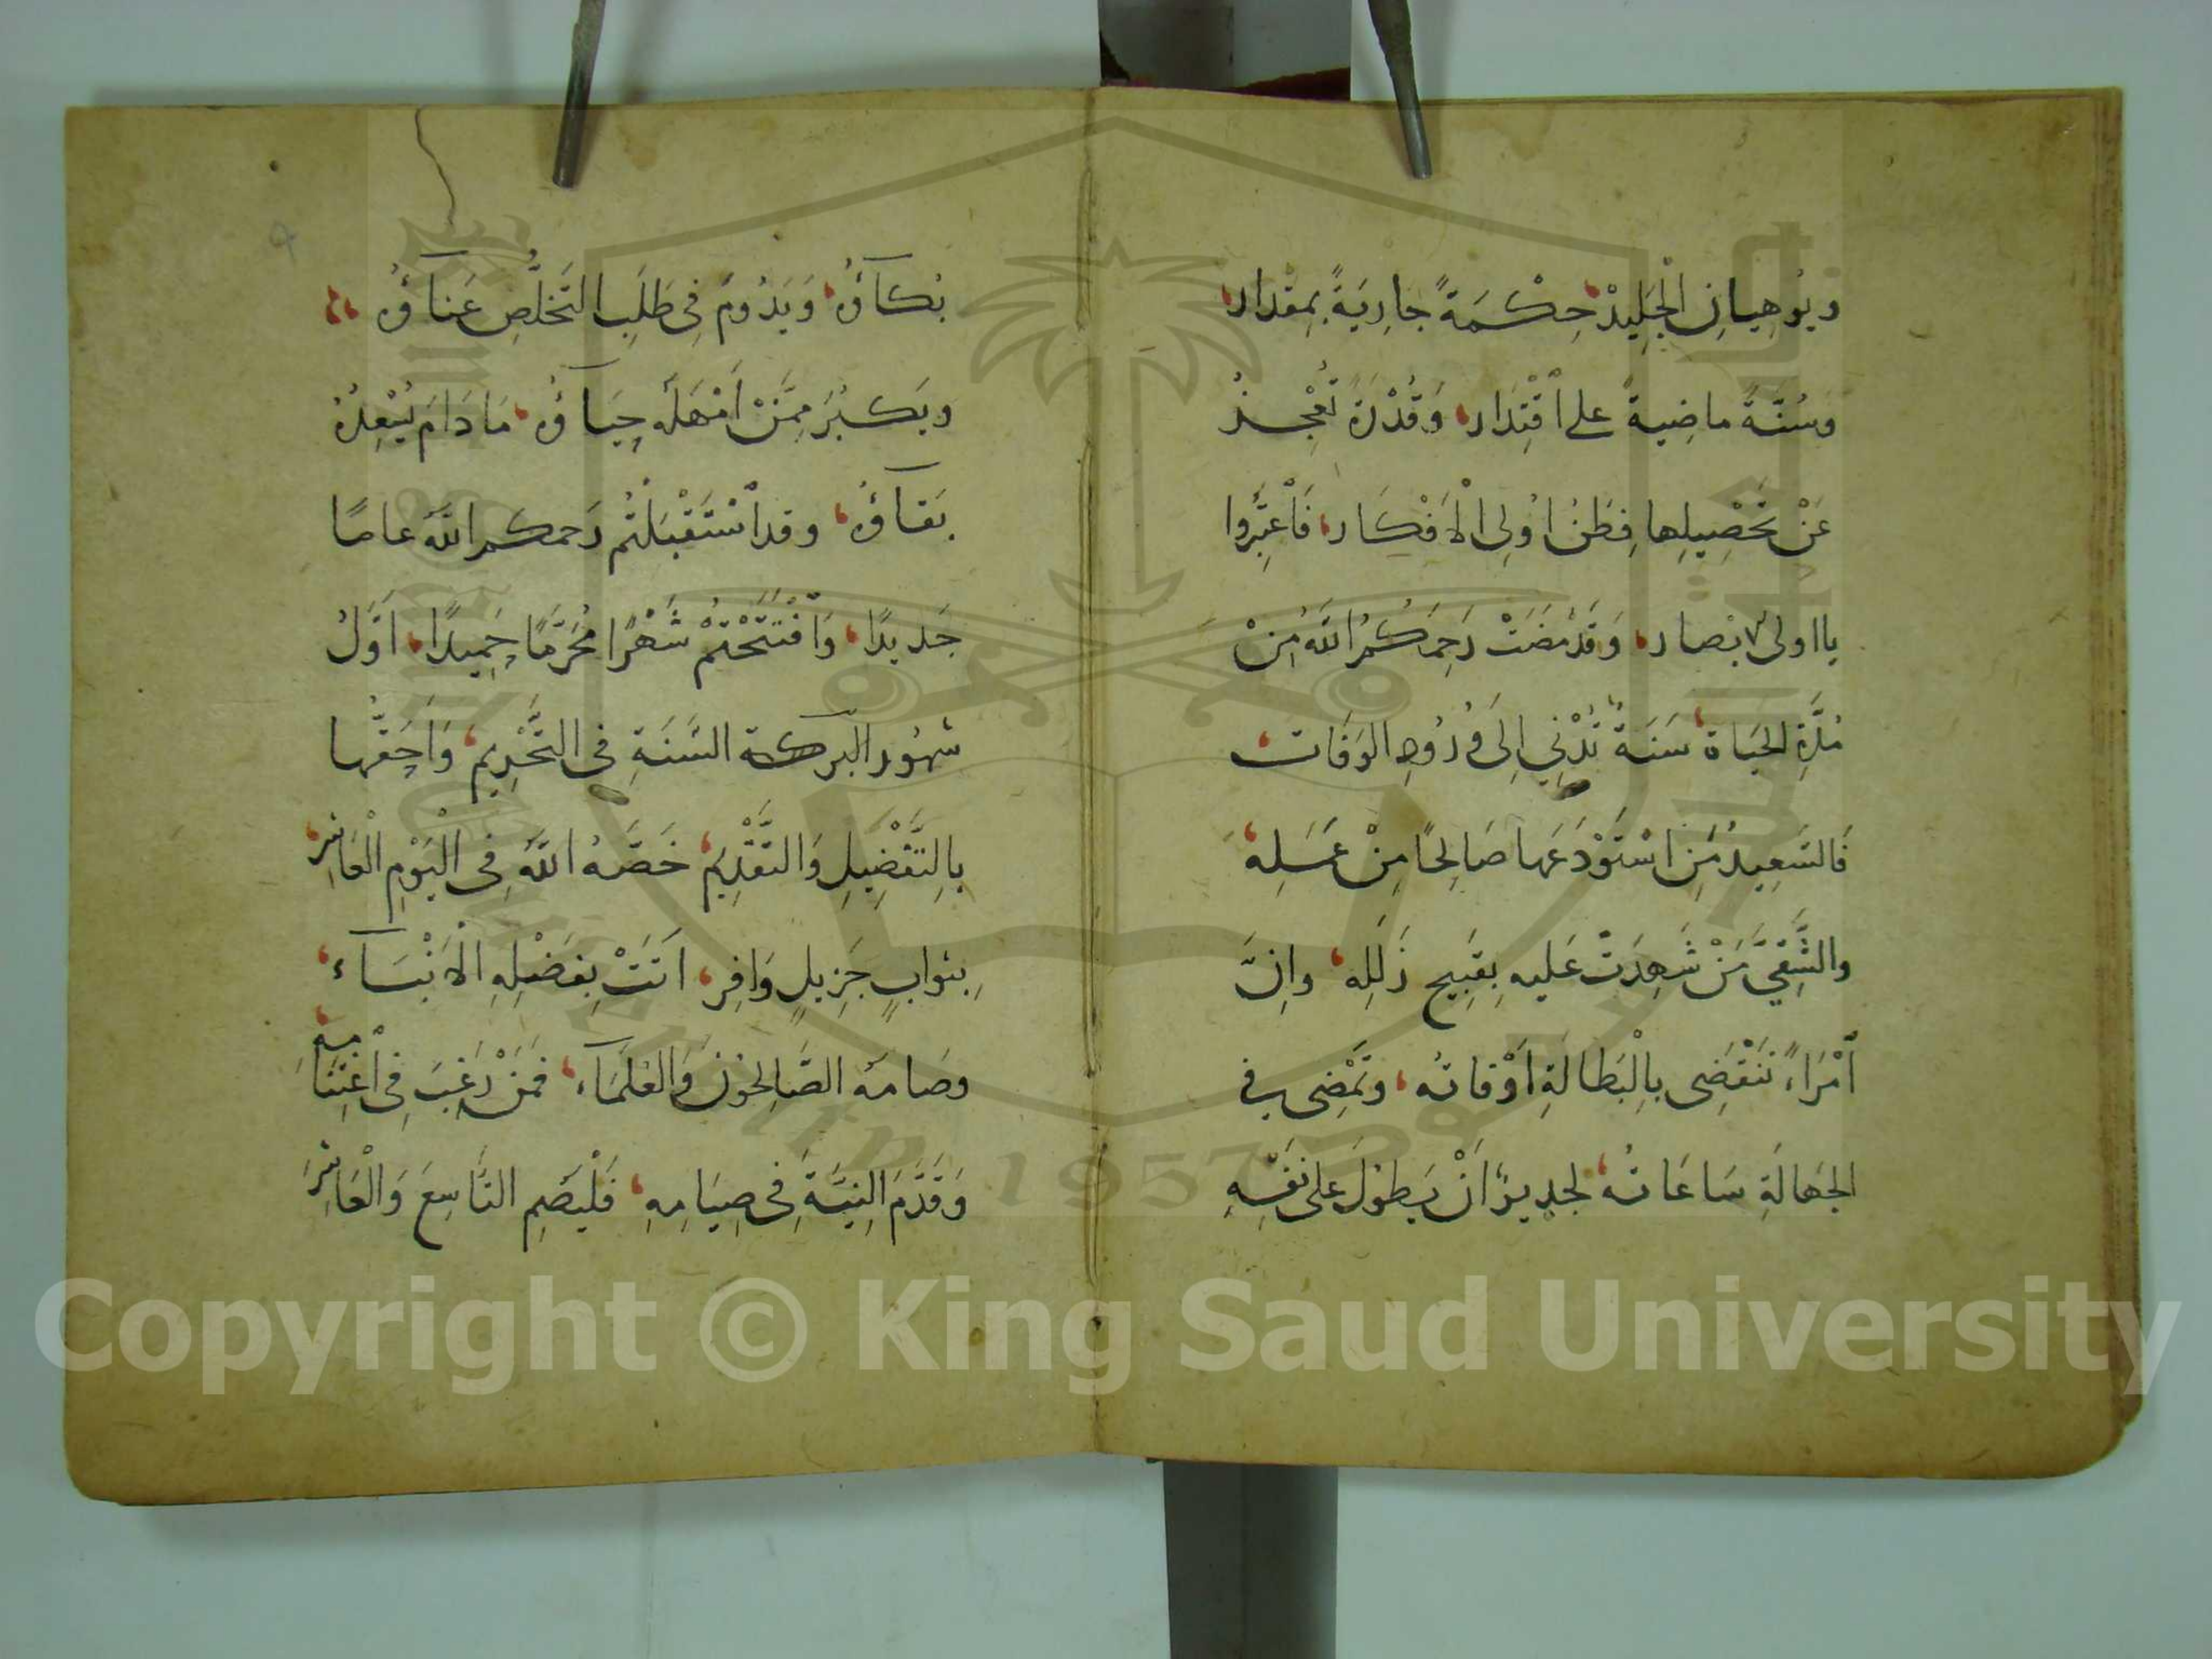 ويُوهِيانِ الْجَلِيدْ، حِكْمَةً جَارِيَةً بِمِقْدار،
وَسُنَّةً ماضِيةً على اقْتِدَار، وَقُدْرَةً تُعْجِزُ
عَنْ تَحْصِيلِها فِطَنُ اُولِى الْاَفْكَار، فَاْعتَبِرُوا
يا اولى الابصار، وَقَدْ مَضَتْ رَحِمَكُمُ اللهُ مِنْ
مُدَّةِ الحَيَاة، سَنَةٌ تُدْنِي اِلَى وُرُودِ الوَفَات،
فَالسَعِيدُ مَنِ اسْتَوْدَعَها صَالِحًا مِنْ عَمَلِه،
والشَّقِيُّ مَنْ شَهِدَتْ عَليهِ بِقَبِيحِ زَلَلِه، وانَّ
اْمْرَاءً تَنْقَضِى بِالْبَطَالَةِ اَوْقاتُه، وتَمْضِى في
الجَهالَةِ سَاعَاتُه، لجديرٌ اَنْ يَطولَ على نَفْسِهِ
بُكآؤُه، وَيَدُومَ فِى طَلَبِ التَخَلُّصِ عَنآؤُه،
ويَكْبُرَ مِمَّنْ اَمْهَلَهُ حِيَآؤُه، مَا دَامَ يُبْعِدُهُ
بَقآؤُه، وقد اسْتَقْبَلْتُم رَحمكم اللهُ عامًا
جَديدًا، وَاْفْتَتَحْتُمْ شَهْرًا مُحَرَّمًا حَمِيدًا، اَوَّلُ
شهُور البركة السَّنَةِ فى التَّحْرِيم، وَاَحَقُّها
بِالتَّفْضِيلِ وَالتَّقْدِيم، خَصَّهُ اللهُ فِى الْيَوْمِ الْعَاشِر،
بِثوابٍ جَزِيلٍ وَافِر، اَتَتْ بِفَضْلِهِ الْاَنْبَآء،
وصَامهُ الصَّالِحُونَ وَالعُلَمَآء، فَمَنْ رَغِبَ فِى اْغْتِنَامِهِ،
وَقَدَّمَ النِيَّةَ فِى صِيَامِهِ، فَلْيَصُمِ التَّاسِعَ وَالْعَاشِرَ
Copyright © King Saud University
1957